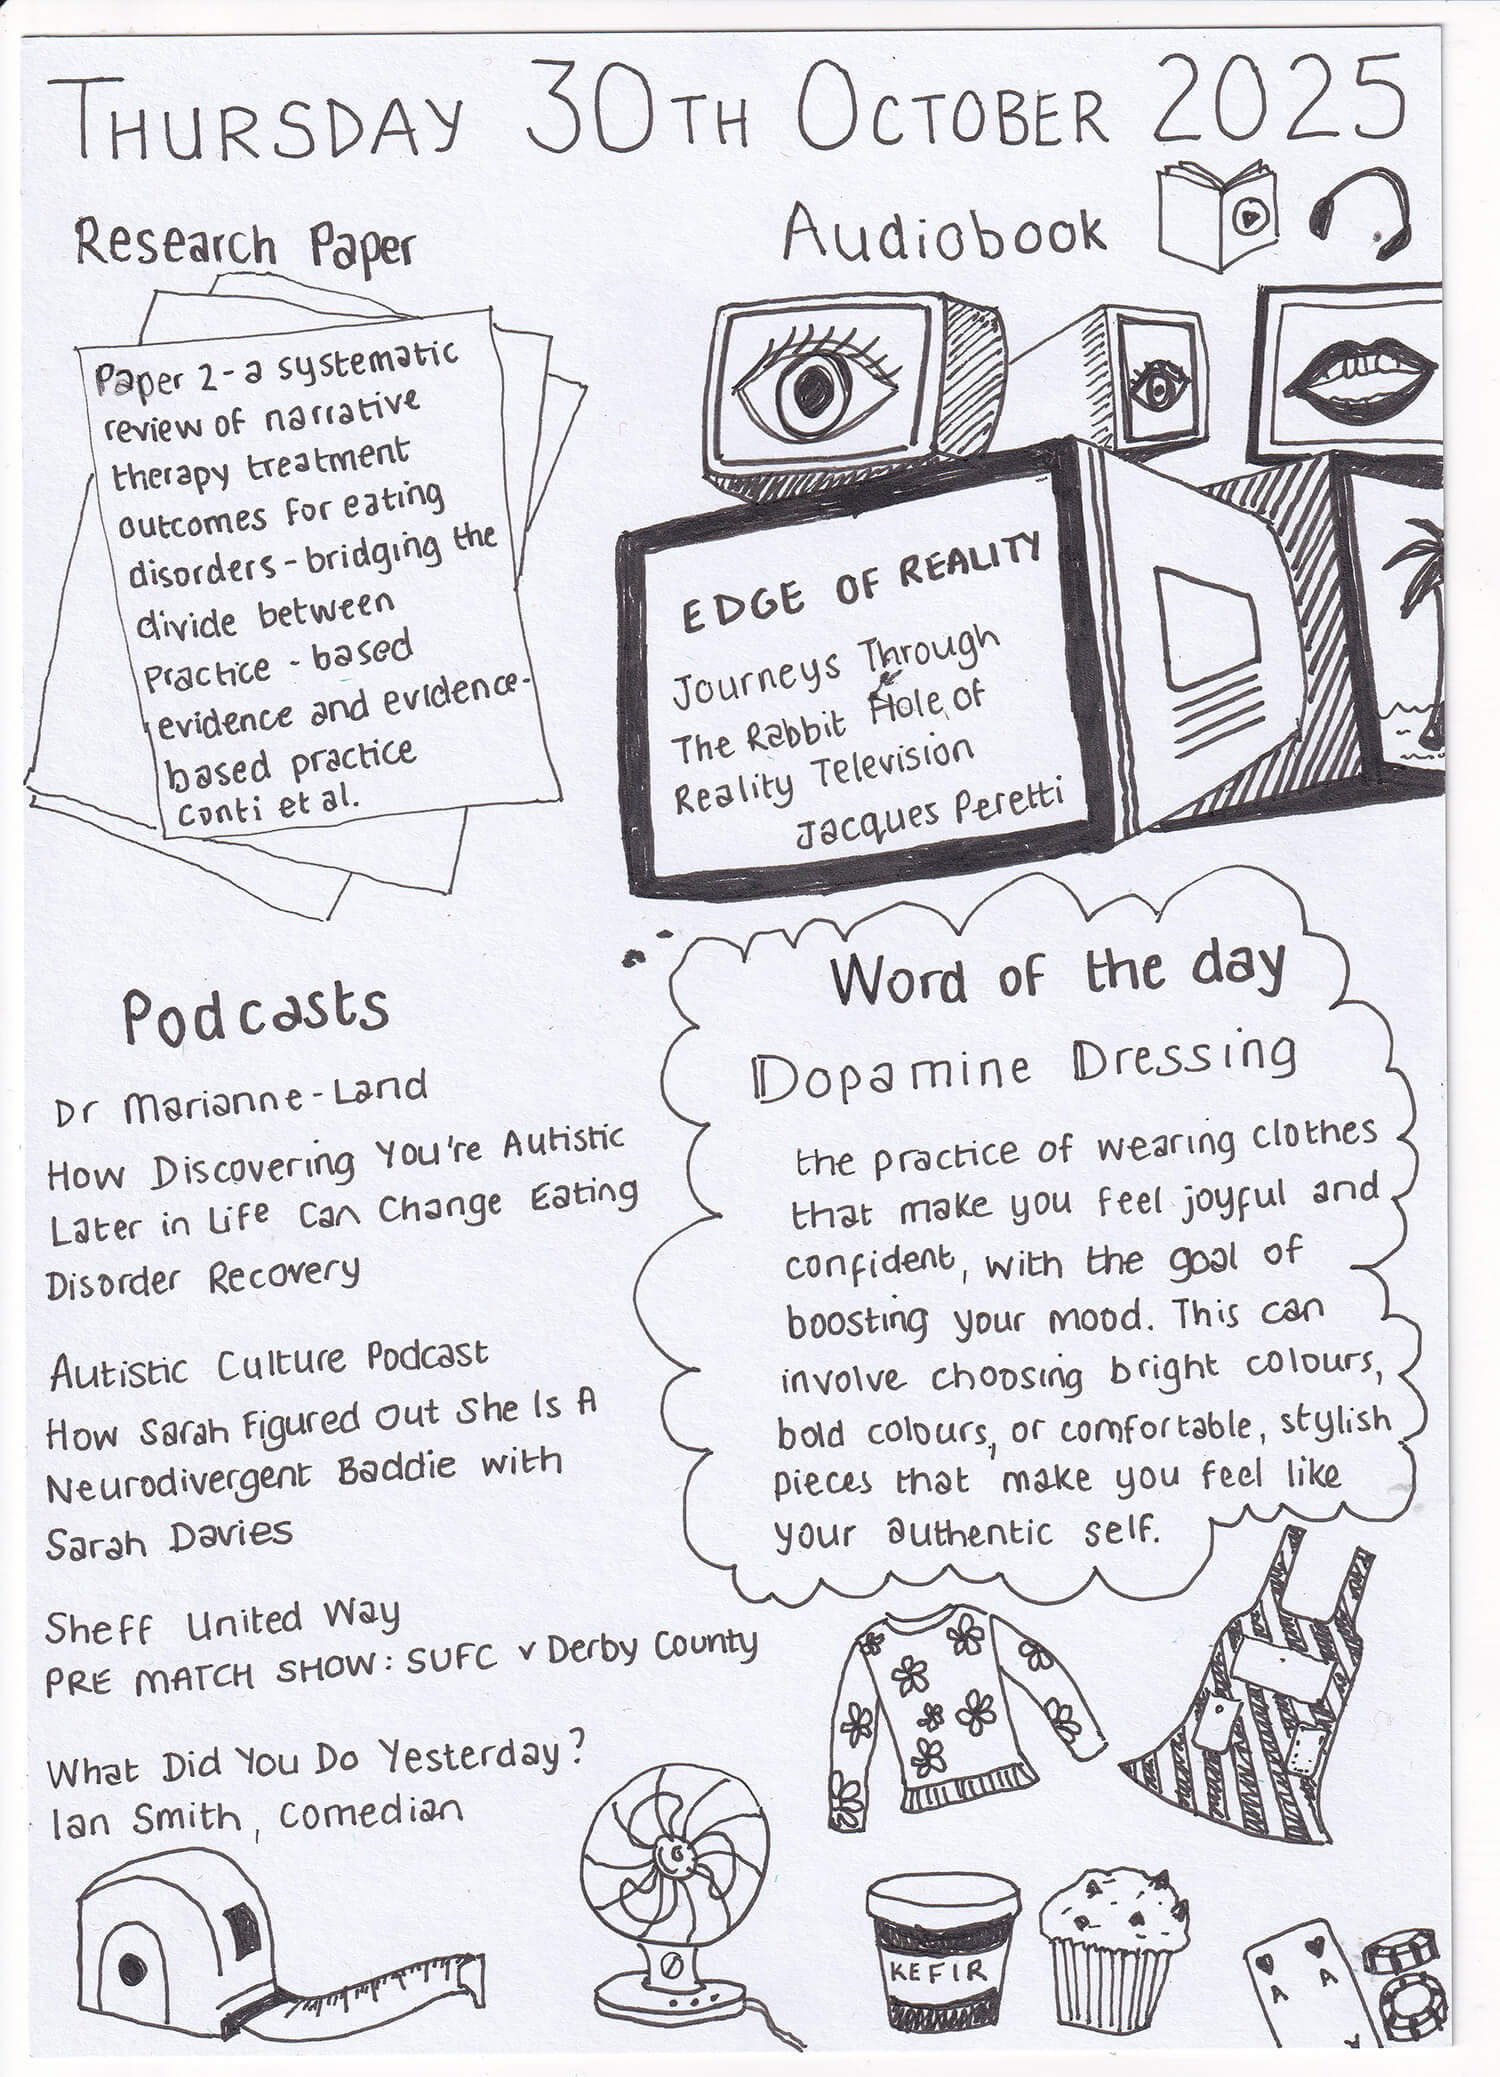 THURSDAY 30TH OCTOBER 2025
Research Paper
Paper 2 - a systematic
review of narrative
therapy treatment
outcomes for eating
disorders - bridging the
divide between
Practice - based
evidence and evidence-
based practice
Conti et al.
Audiobook
EDGE OF REALITY
Journeys Through
The Rabbit Hole of
Reality Television
Jacques Peretti
Podcasts
Dr Marianne-Land
How Discovering You're Autistic
Later in Life Can Change Eating
Disorder Recovery
Autistic Culture Podcast
How Sarah Figured Out She Is A
Neurodivergent Baddie with
Sarah Davies
Sheff United Way
PRE MATCH SHOW: SUFC v Derby County
What Did You Do Yesterday?
Ian Smith, Comedian
Word of the day
Dopamine Dressing
the practice of wearing clothes
that make you feel joyful and
confident, with the goal of
boosting your mood. This can
involve choosing bright colours,
bold colours, or comfortable, stylish
pieces that make you feel like
your authentic self.
KEFIR
A
A
A